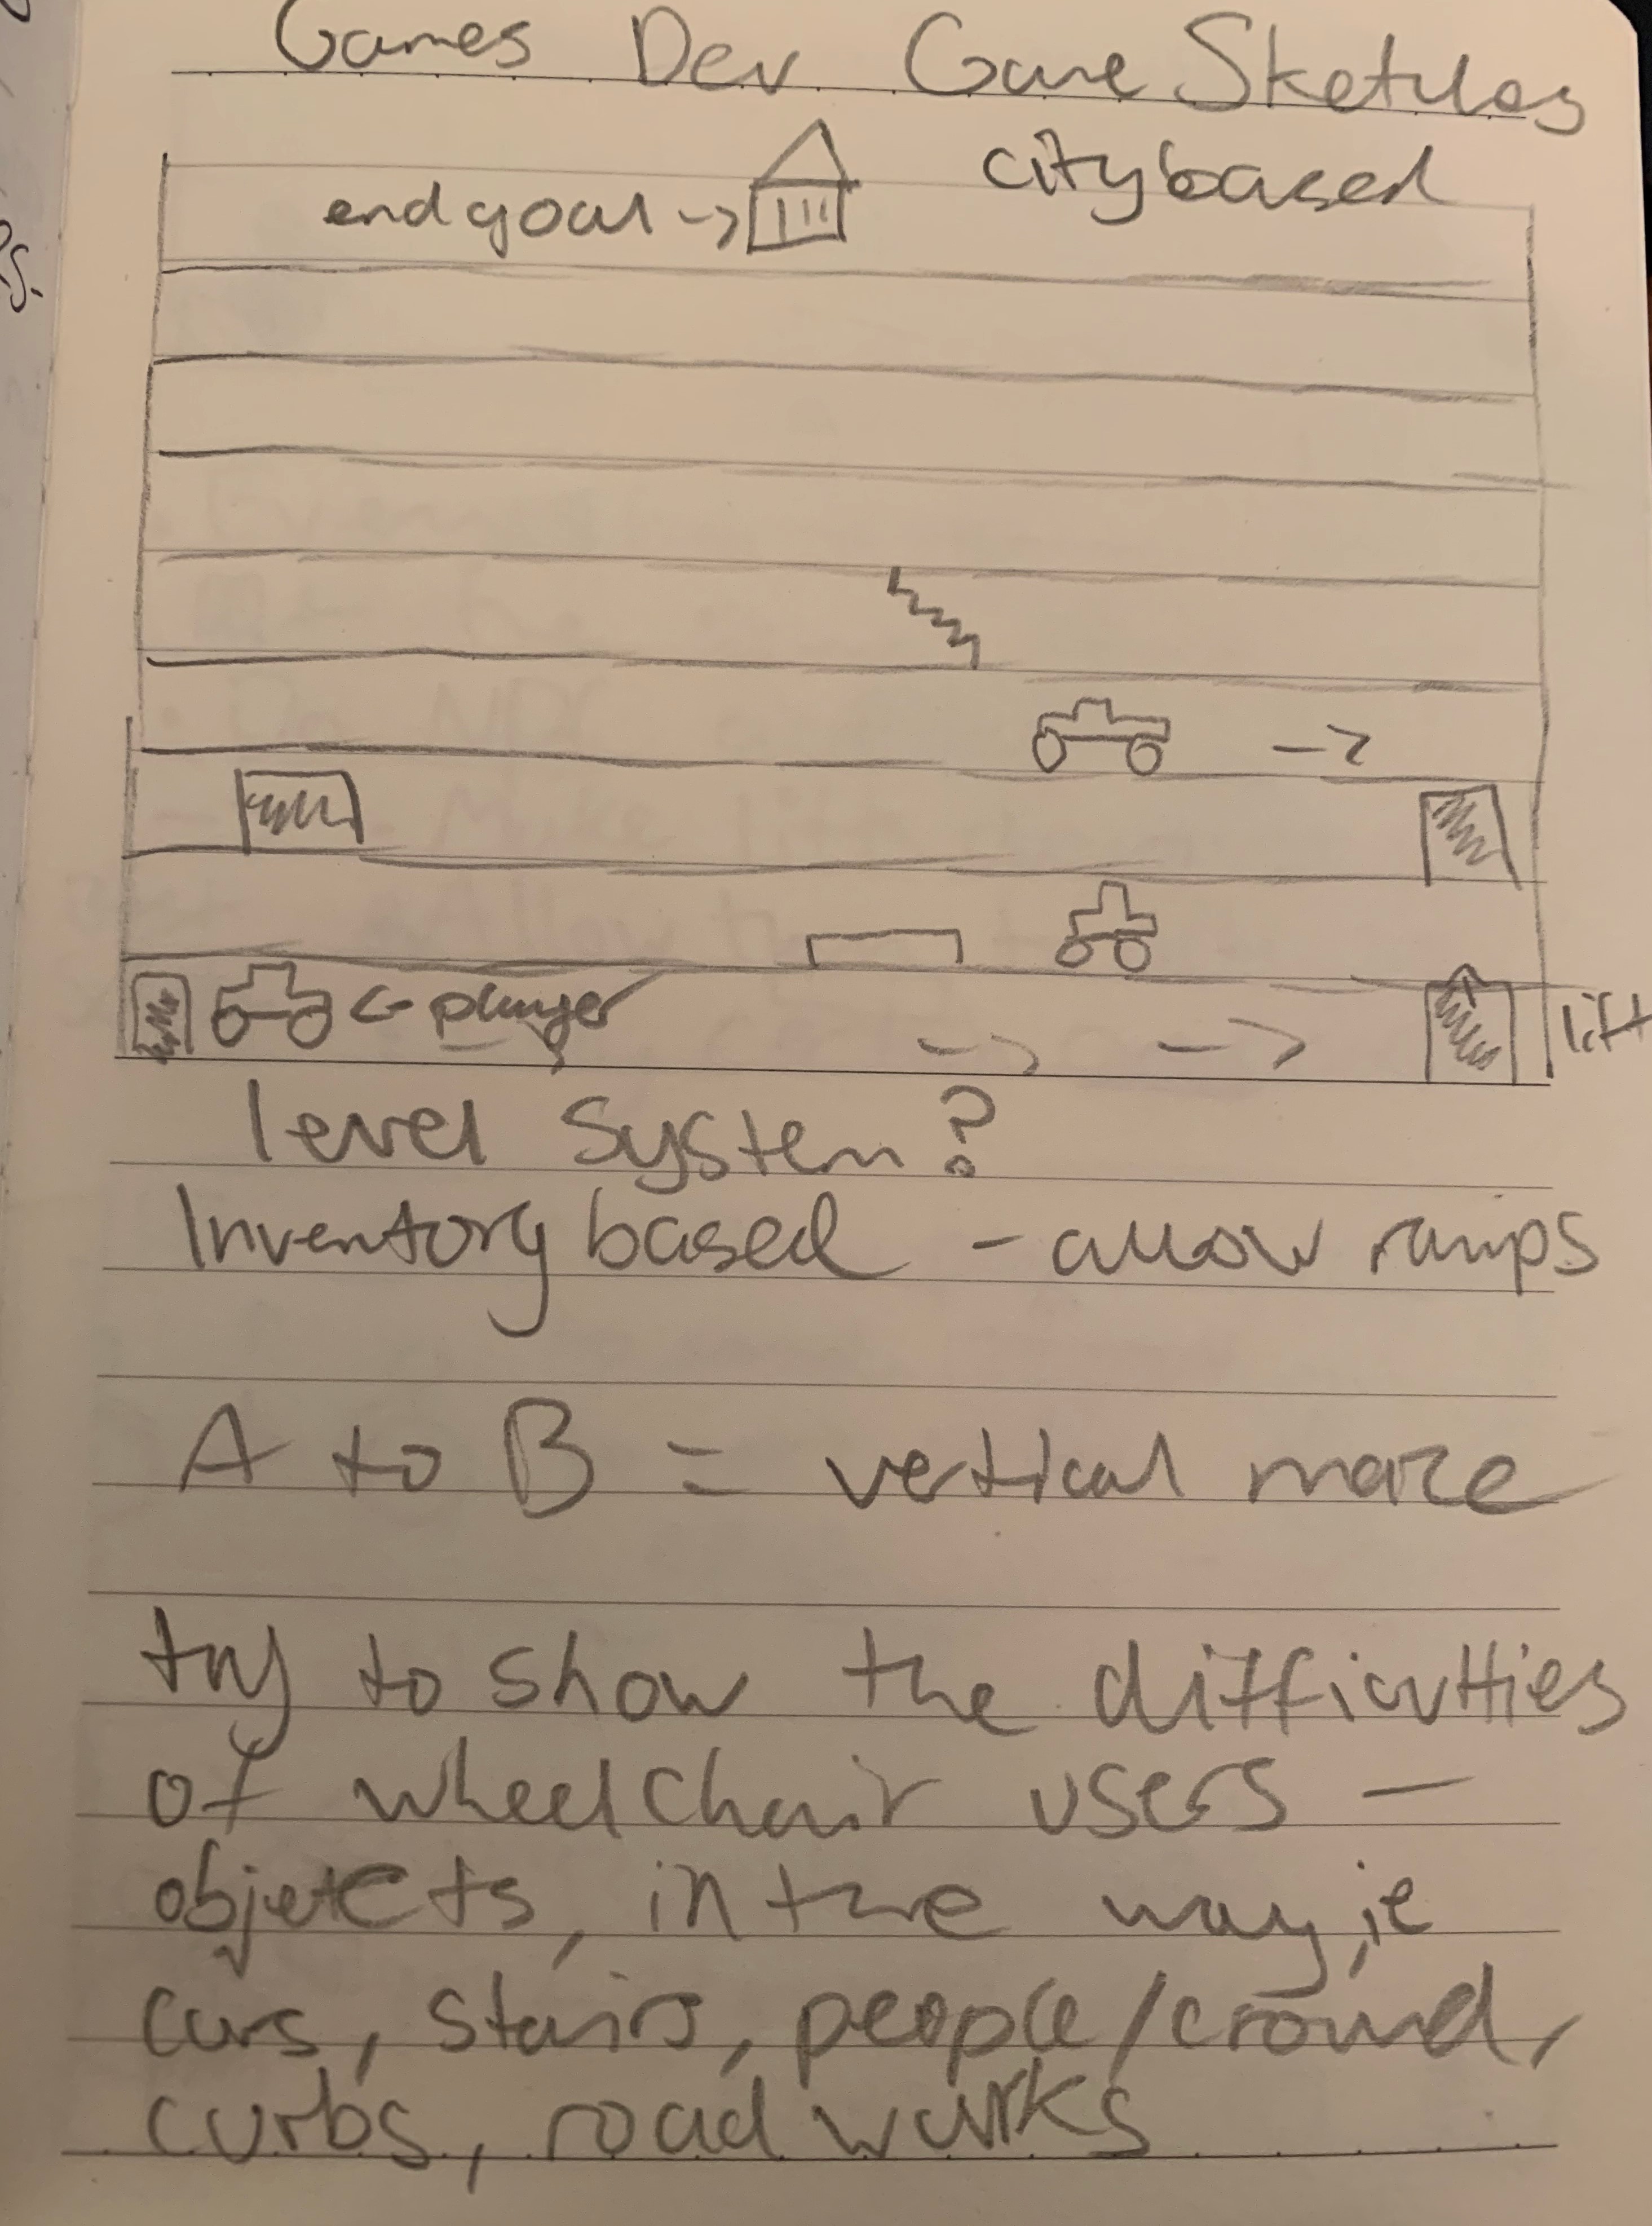 Games Dev Game Sketches
city based
end goal ->
<- player
lift
level system?
Inventory based - allow ramps
A to B = vertical maze
try to show the difficulties
of wheelchair users -
objects, in the way, ie
cars, stairs, people/crowd,
curbs, road works